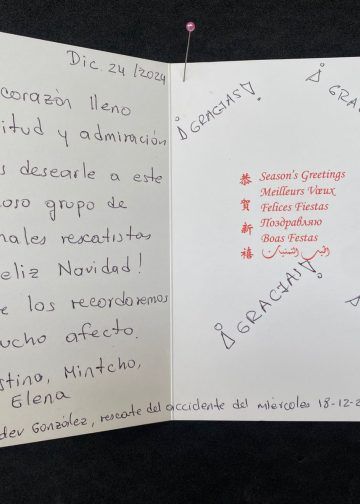 Dic. 24/2024
corazón lleno
itud y admiración
s desearle a este
oso grupo de
nales rescatistas
eliz Navidad!
e los recordaremos
ucho afecto.
stino, Mintcho,
Elena
dev González, rescate del accidente del miércoles 18-12-2
¡GRACIAS!
¡GRA
恭賀新禧
Season's Greetings
Meilleurs Vœux
Felices Fiestas
Поздравляю
Boas Festas
¡GRACIAS!